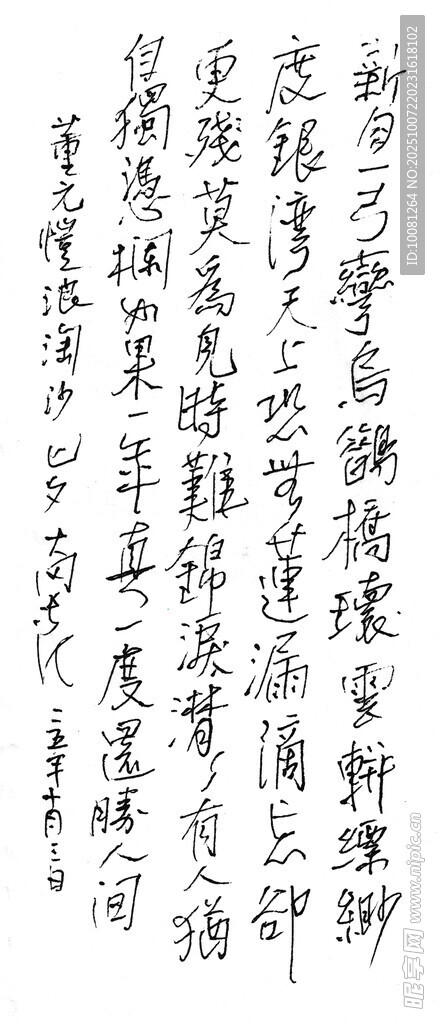 新月一弓彎烏鵲橋環雲軿縹緲
度銀灣天上恐無蓮漏滴忘卻
更殘莫為見時難錦淚潸々有人猶
自獨憑欄如果一年真一度還勝人间
董元愷浪淘沙七夕 二五年十月三日
ID:10081264 NO:20251007220231618102
昵享网 www.nipic.cn